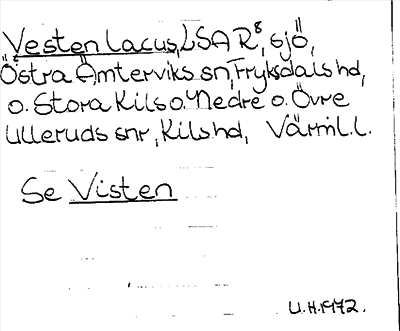 Vesten lacus, LSA R⁸, sjö,
Östra Ämterviks sn, Fryksdals hd,
o. Stora Kils o. Nedre o. Övre
Ulleruds snr, Kils hd, Värml. l.
Se Visten
U.H. 1972.